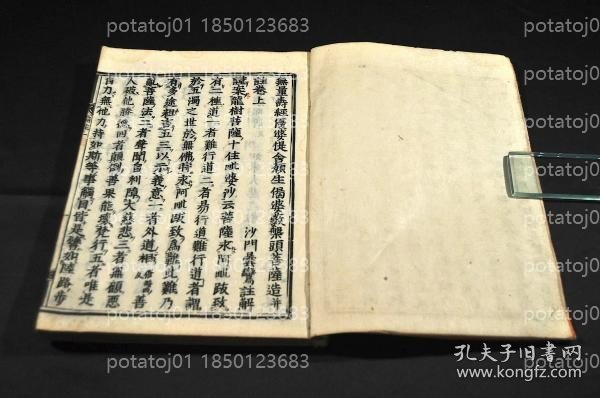 potatoj01 1850123683 potatoj01 1850123683 potatoj01
無量壽經優婆提舍願生偈婆藪槃頭菩薩造并
註卷上 沙門曇鸞註解
謹案龍樹菩薩十住毗婆沙云菩薩求阿毗跋致
有二種道一者難行道二者易行道難行道者謂
於五濁之世於無佛時求阿毗跋致爲難此難乃
有多途粗言五三以示義意一者外道相善
亂菩薩法二者聲聞自利障大慈悲三者無顧惡
人破他勝德四者顛倒善果能壞梵行五者唯是
自力無他力持如斯等事觸目皆是譬如陸路步
potatoj01 1850123683 potatoj01 1850123683 potatoj01
孔夫子旧书网
www.kongfz.com